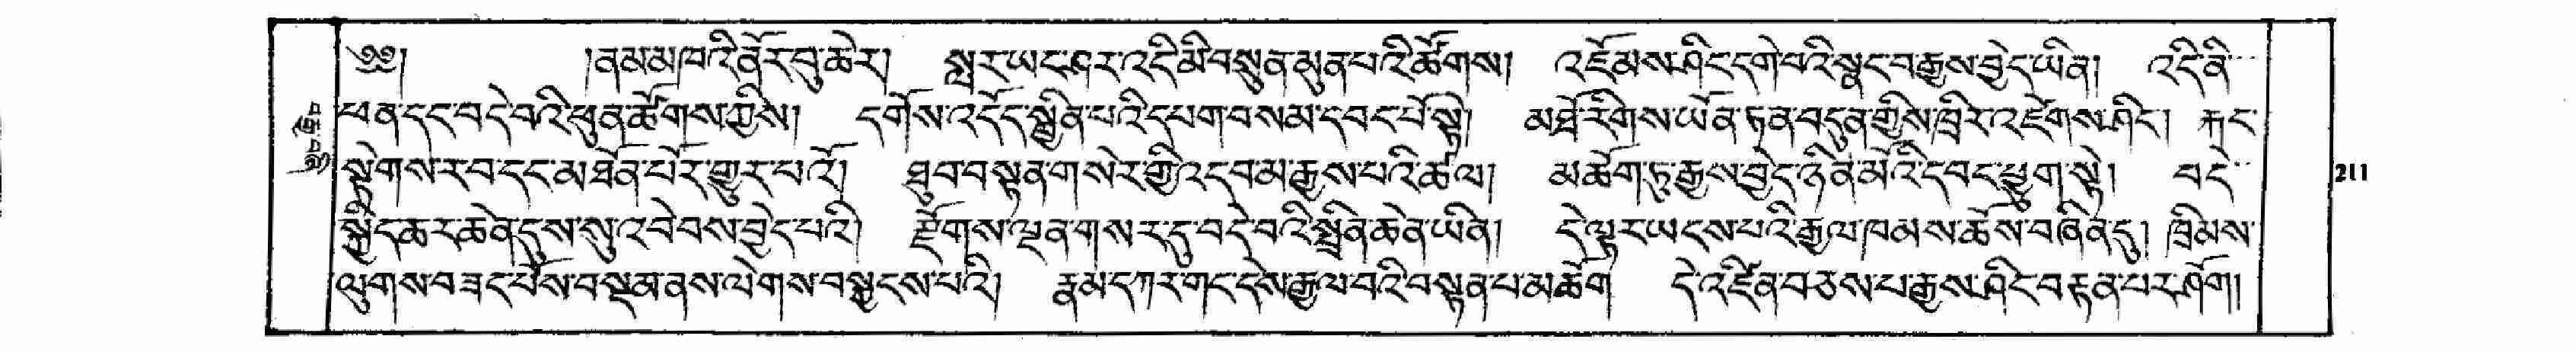 ༄༅། །ནམ་མཁའི་ནོར་བུ་ཆེར། སླར་ཡང་ཤར་འདི་མི་བསྲུན་མུན་པའི་ཚོགས། འཇོམས་ཤིང་དགེ་བའི་སྣང་བ་རྒྱས་བྱེད་ཡིན། འདི་ནི་
ཕན་དང་བདེ་བའི་ཕུན་ཚོགས་ཀྱིས། དགོས་འདོད་སྦྱིན་པའི་དཔག་བསམ་དབང་པོ་སྟེ། མཐོ་རིགས་ཡོན་ཏན་བདུན་གྱི་སེ་ཁྲིར་འཛེགས་ཤིང་། རྐང་
སྟེགས་ར་བ་དང་མ་ཐོན་པོར་གྱུར་པའོ། ཐུབ་བསྟན་གསེར་གྱི་འདབ་མ་རྒྱས་པའི་ཚལ། མཆོག་ཏུ་རྒྱས་བྱེད་ཉིན་མོའི་དབང་ཕྱུག་སྟེ། བདེ་
སྐྱིད་ཆར་ཆེན་དུས་སུ་འབེབས་བྱེད་པའི། རྫོགས་ལྡན་གསར་དུ་བདེ་བའི་སྤྲིན་ཆེན་ཡིན། དེ་ལྟར་ཡངས་པའི་རྒྱལ་ཁམས་ཆོས་བཞིན་དུ། ཁྲིམས་
ལུགས་བཟང་པོས་བསྡམ་ནས་ལེགས་བསྐྱངས་པའི། རྣམ་དཀར་གང་དེས་རྒྱལ་བའི་བསྟན་པ་མཆོག དེ་འཛིན་བཅས་པ་རྒྱས་ཤིང་བརྟན་པར་ཤོག།
211